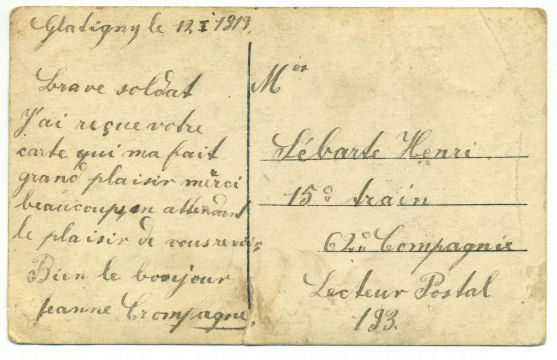 Glatigny le 12 I 1919.
Brave soldat
J'ai reçue votre
carte qui ma fait
grand plaisir merci
beaucoup en attendant
le plaisir de vous revoir
Bien le bonjour
Jeanne Crompagne.
Mer
Lébarte Henri
15e train
62e Compagnie
Secteur Postal
193.